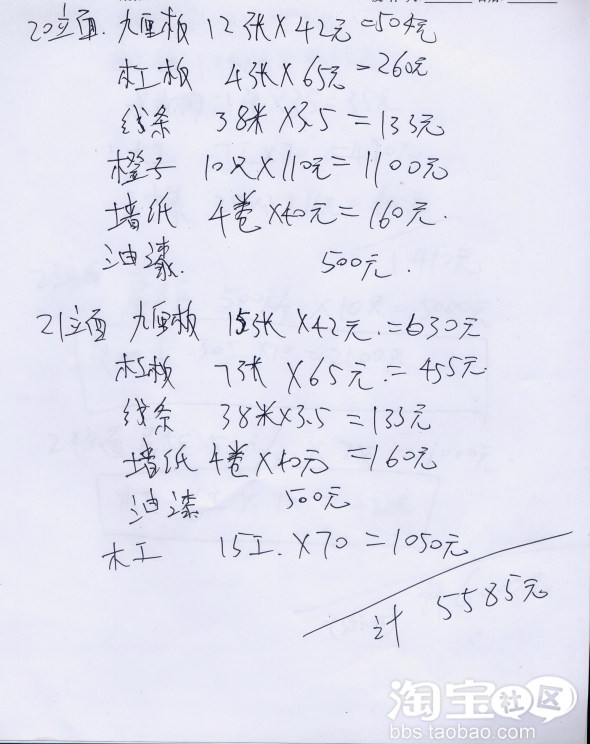 20立面. 九厘板 12张×42元=504元
木工板 4张×65元=260元
线条 38米×3.5=133元
橙子 10只×110元=1100元
墙纸 4卷×40元=160元.
油漆. 500元.
21立面 九厘板 15张×42元.=630元
木工板 7张×65元.=455元
线条 38米×3.5=133元
墙纸 4卷×40元=160元
油漆 500元
木工 15工.×70=1050元
计 5585元
淘宝社区
bbs.taobao.com